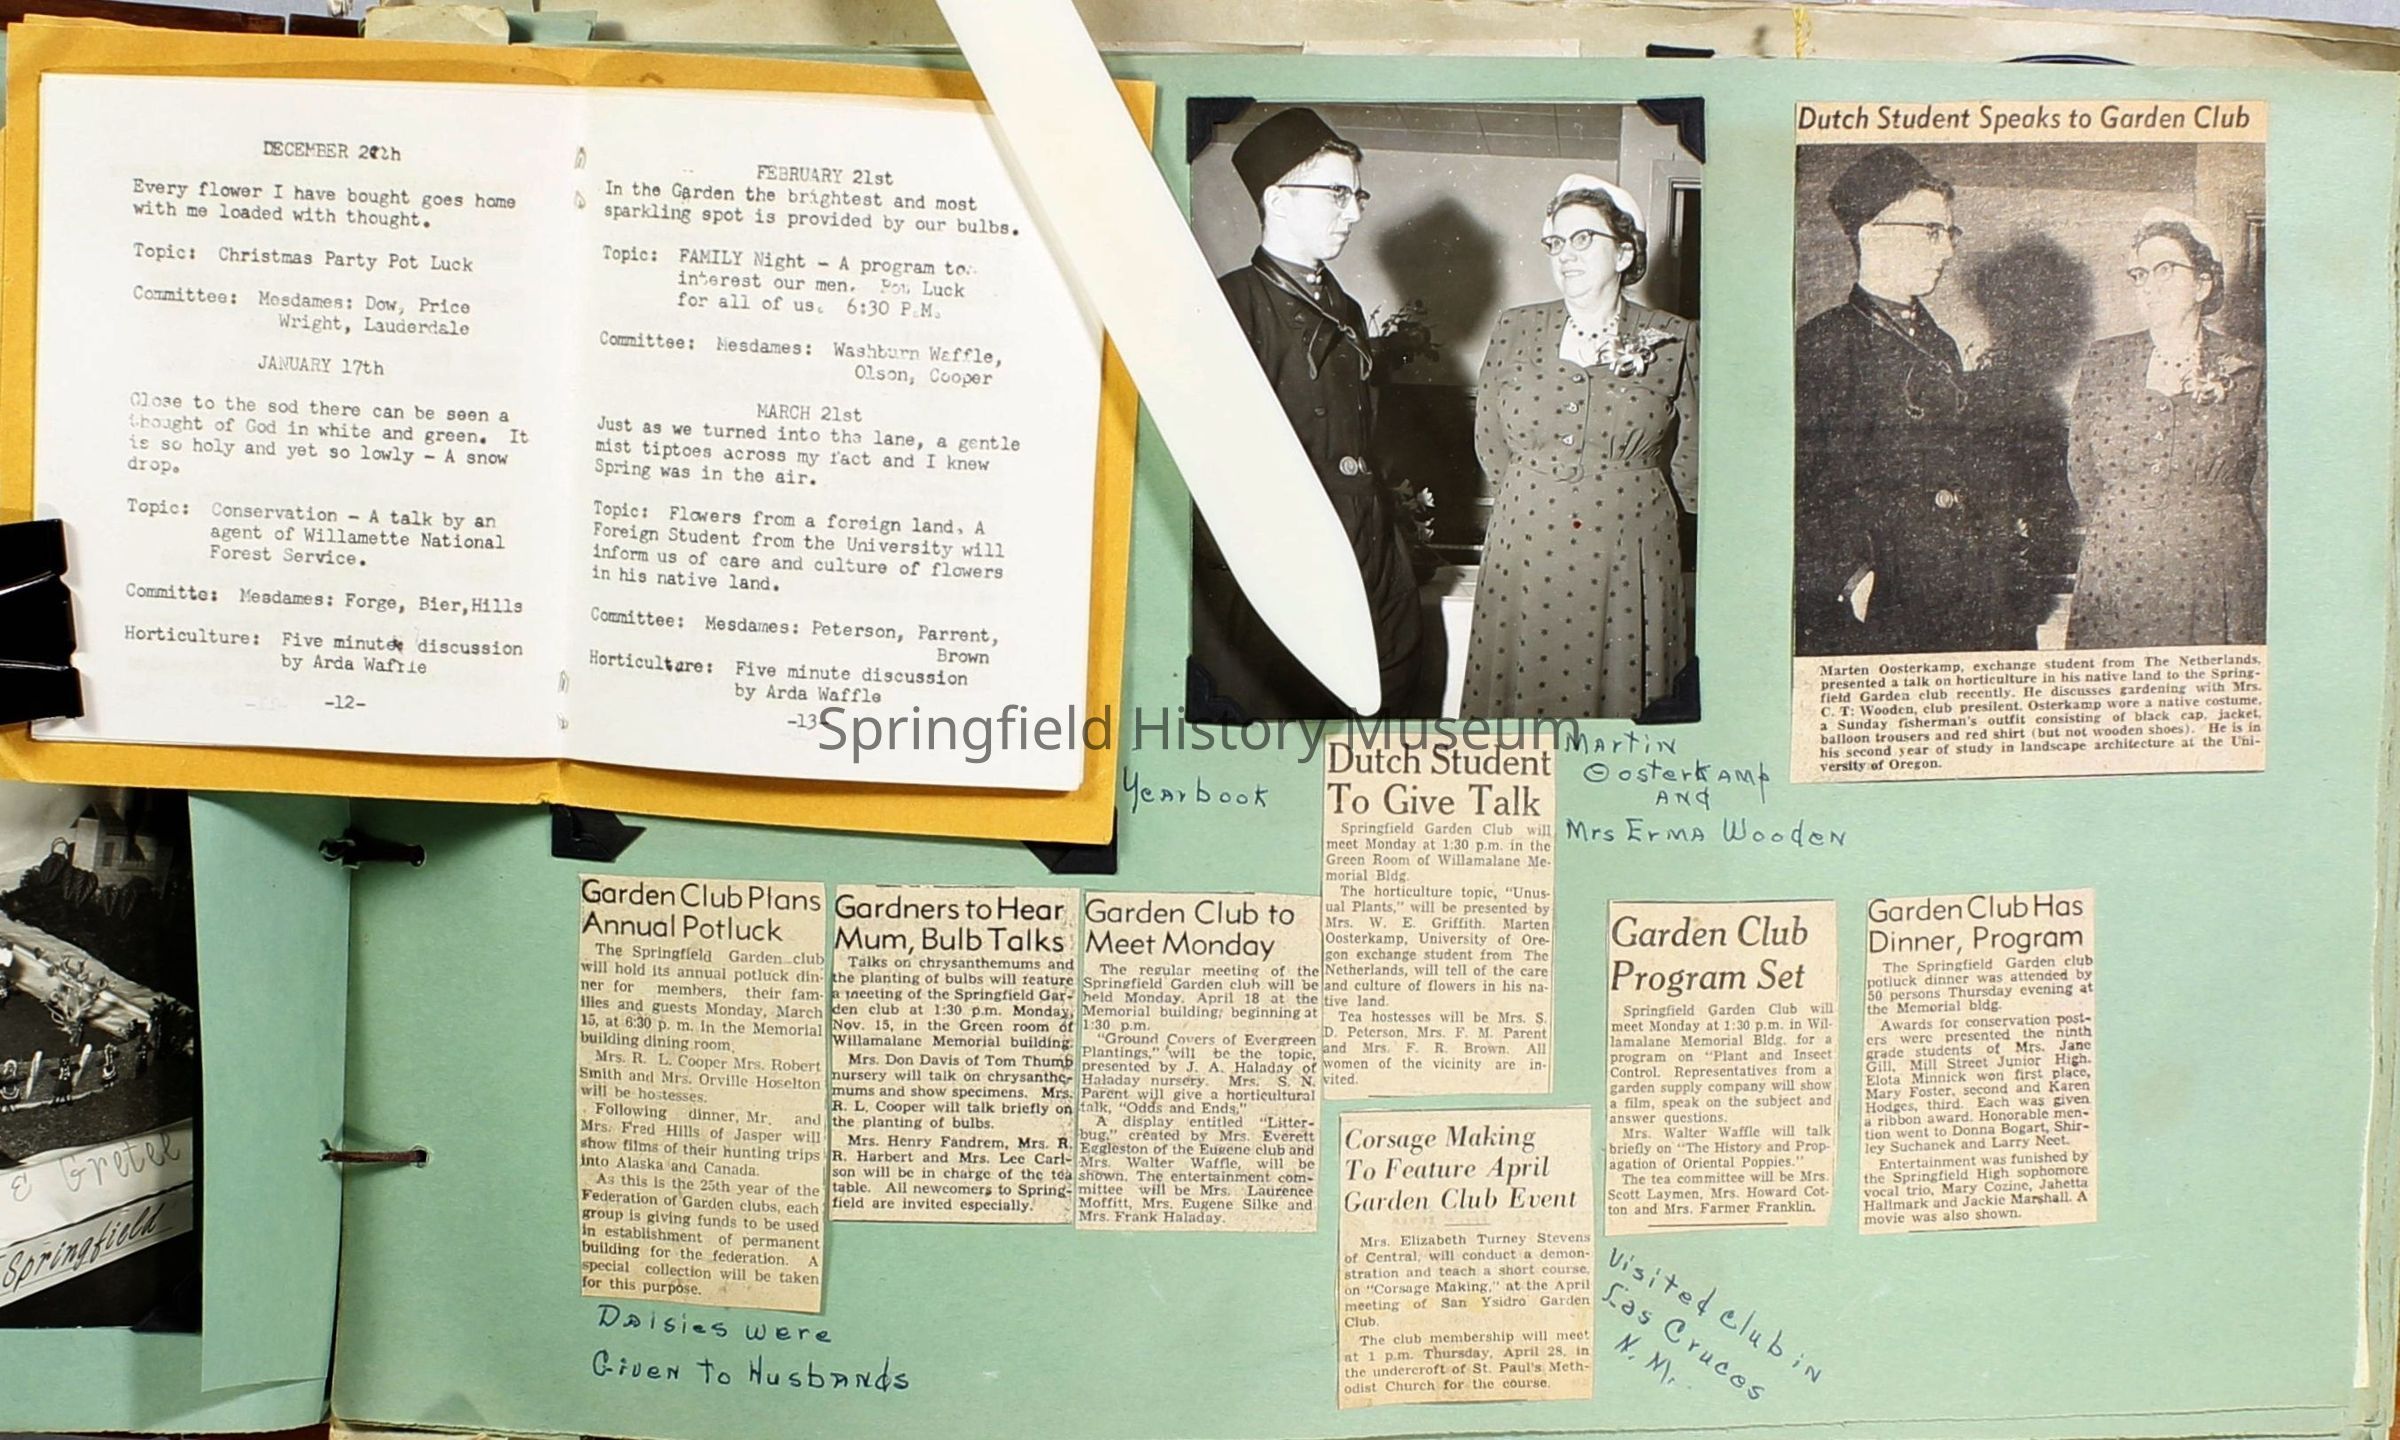 DECEMBER 20th
Every flower I have bought goes home
with me loaded with thought.
Topic: Christmas Party Pot Luck
Committee: Mesdames: Dow, Price
Wright, Lauderdale
JANUARY 17th
Close to the sod there can be seen a
thought of God in white and green. It
is so holy and yet so lowly - A snow
drop.
Topic: Conservation - A talk by an
agent of Willamette National
Forest Service.
Committe: Mesdames: Forge, Bier,Hills
Horticulture: Five minute discussion
by Arda Waffle
-12-
FEBRUARY 21st
In the Garden the brightest and most
sparkling spot is provided by our bulbs.
Topic: FAMILY Night - A program to
interest our men. Pot Luck
for all of us. 6:30 P.M.
Committee: Mesdames: Washburn Waffle,
Olson, Cooper
MARCH 21st
Just as we turned into the lane, a gentle
mist tiptoes across my fact and I knew
Spring was in the air.
Topic: Flowers from a foreign land. A
Foreign Student from the University will
inform us of care and culture of flowers
in his native land.
Committee: Mesdames: Peterson, Parrent,
Brown
Horticulture: Five minute discussion
by Arda Waffle
-13-
Springfield History Museum
Yearbook
Martin
Oosterkamp
and
Mrs Erma Wooden
Dutch Student Speaks to Garden Club
Marten Oosterkamp, exchange student from The Netherlands,
presented a talk on horticulture in his native land to the Spring-
field Garden club recently. He discusses gardening with Mrs.
C. T. Wooden, club presilent. Osterkamp wore a native costume,
a Sunday fisherman's outfit consisting of black cap, jacket,
balloon trousers and red shirt (but not wooden shoes). He is in
his second year of study in landscape architecture at the Uni-
versity of Oregon.
Garden Club Plans
Annual Potluck
The Springfield Garden club
will hold its annual potluck din-
ner for members, their fam-
ilies and guests Monday, March
15, at 6:30 p. m. in the Memorial
building dining room.
Mrs. R. L. Cooper Mrs. Robert
Smith and Mrs. Orville Hoselton
will be hostesses.
Following dinner, Mr. and
Mrs. Fred Hills of Jasper will
show films of their hunting trips
into Alaska and Canada.
As this is the 25th year of the
Federation of Garden clubs, each
group is giving funds to be used
in establishment of permanent
building for the federation. A
special collection will be taken
for this purpose.
Daisies were
Given to Husbands
Gardners to Hear
Mum, Bulb Talks
Talks on chrysanthemums and
the planting of bulbs will feature
a meeting of the Springfield Gar-
den club at 1:30 p.m. Monday,
Nov. 15, in the Green room of
Willamalane Memorial building.
Mrs. Don Davis of Tom Thumb
nursery will talk on chrysanthe-
mums and show specimens. Mrs.
R. L. Cooper will talk briefly on
the planting of bulbs.
Mrs. Henry Fandrem, Mrs. R.
R. Harbert and Mrs. Lee Carl-
son will be in charge of the tea
table. All newcomers to Spring-
field are invited especially.
Garden Club to
Meet Monday
The regular meeting of the
Springfield Garden club will be
held Monday, April 18 at the
Memorial building, beginning at
1:30 p.m.
"Ground Covers of Evergreen
Plantings," will be the topic,
presented by J. A. Haladay of
Haladay nursery. Mrs. S. N.
Parent will give a horticultural
talk, "Odds and Ends,"
A display entitled "Litter-
bug," created by Mrs. Everett
Eggleston of the Eugene club and
Mrs. Walter Waffle, will be
shown. The entertainment com-
mittee will be Mrs. Laurence
Moffitt, Mrs. Eugene Silke and
Mrs. Frank Haladay.
Dutch Student
To Give Talk
Springfield Garden Club will
meet Monday at 1:30 p.m. in the
Green Room of Willamalane Me-
morial Bldg.
The horticulture topic, "Unus-
ual Plants," will be presented by
Mrs. W. E. Griffith. Marten
Oosterkamp, University of Ore-
gon exchange student from The
Netherlands, will tell of the care
and culture of flowers in his na-
tive land.
Tea hostesses will be Mrs. S.
D. Peterson, Mrs. F. M. Parent
and Mrs. F. R. Brown. All
women of the vicinity are in-
vited.
Corsage Making
To Feature April
Garden Club Event
Mrs. Elizabeth Turney Stevens
of Central, will conduct a demon-
stration and teach a short course,
on "Corsage Making," at the April
meeting of San Ysidro Garden
Club.
The club membership will meet
at 1 p.m. Thursday, April 28, in
the undercroft of St. Paul's Meth-
odist Church for the course.
Garden Club
Program Set
Springfield Garden Club will
meet Monday at 1:30 p.m. in Wil-
lamalane Memorial Bldg. for a
program on "Plant and Insect
Control. Representatives from a
garden supply company will show
a film, speak on the subject and
answer questions.
Mrs. Walter Waffle will talk
briefly on "The History and Prop-
agation of Oriental Poppies."
The tea committee will be Mrs.
Scott Laymen, Mrs. Howard Cot-
ton and Mrs. Farmer Franklin.
Visited club in
Las Cruces
N. M.
Garden Club Has
Dinner, Program
The Springfield Garden club
potluck dinner was attended by
50 persons Thursday evening at
the Memorial bldg.
Awards for conservation post-
ers were presented the ninth
grade students of Mrs. Jane
Gill, Mill Street Junior High.
Elota Minnick won first place,
Mary Foster, second and Karen
Hodges, third. Each was given
a ribbon award. Honorable men-
tion went to Donna Bogart, Shir-
ley Suchanek and Larry Neet.
Entertainment was funished by
the Springfield High sophomore
vocal trio, Mary Cozine, Jahetta
Hallmark and Jackie Marshall. A
movie was also shown.
& Gretel
Springfield